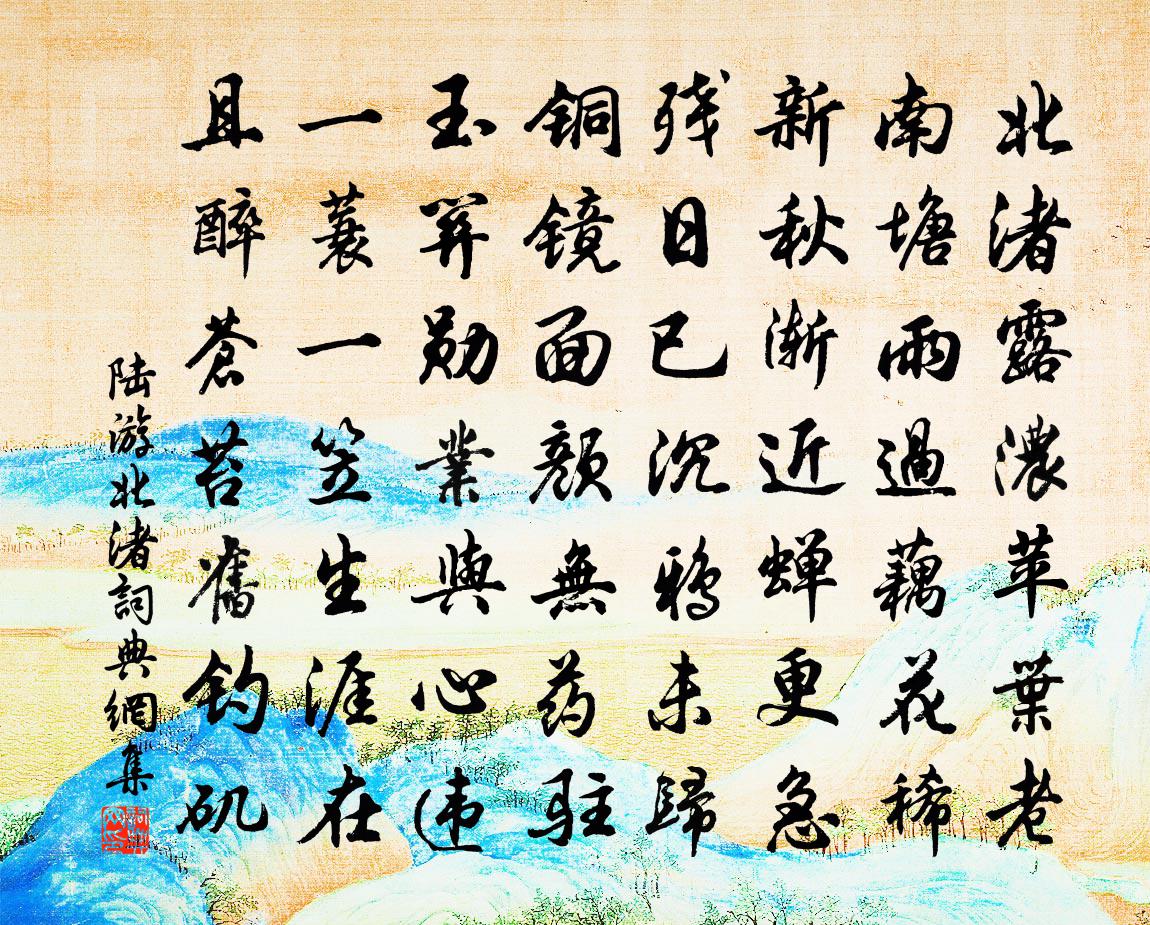 北渚露濃苹葉老
南塘雨過藕花稀
新秋渐近蝉更急
残日已沉鸦未歸
铜镜面颜無药驻
玉笄勋業與心违
一蓑一笠生涯在
且醉蒼苔舊钓矶
陆游北渚詞典網集